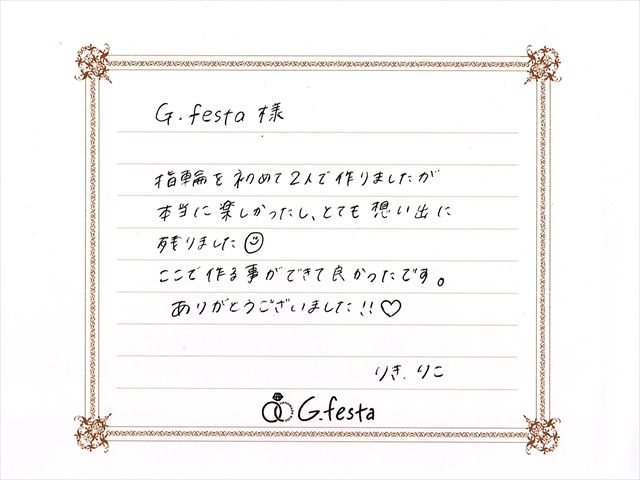 G.festa 様
指輪を初めて2人で作りましたが
本当に楽しかったし、とても想い出に
残りました☺
ここで作る事ができて良かったです。
ありがとうございました!!♡
りき.りこ
G.festa